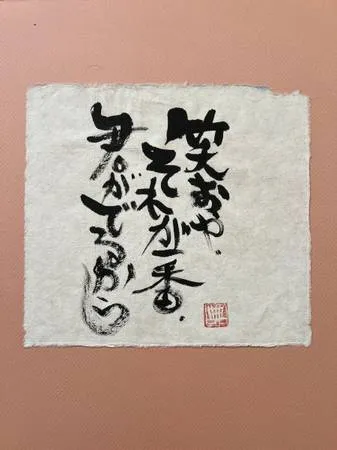 笑おや、
それが一番.
君がでるから